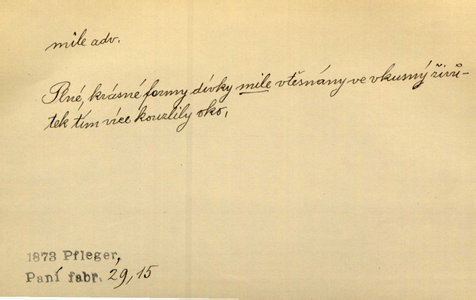 mile adv.
Plné, krásné formy dívky mile vtěsnány ve vkusný živů-
tek tím více kouzlily oko,
1873 Pfleger,
Paní fabr. 29, 15